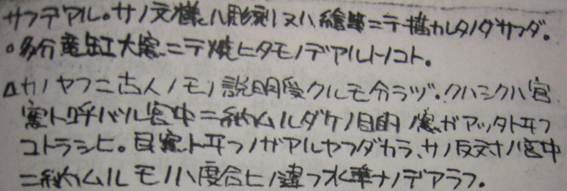 サフデアル。サノ文様ハ彫刻又ハ繪筆ニテ描カレタノダサフダ。
○多分竜缸大窯ニテ焼ヒタモノデアルトノコト。
△カノヤフニ古人ノモノ説明受クルモ分ラヅ。クハシクハ官
窯ト呼バル宮中ニ納ムルダケノ目的ノ窯ガアッタト云フ
コトラシヒ。民窯ト云フノガアルヤフダカラ、サノ反対ハ宮中
ニ納ムルモノハ度合ヒノ違フ水準ナノデアラフ。